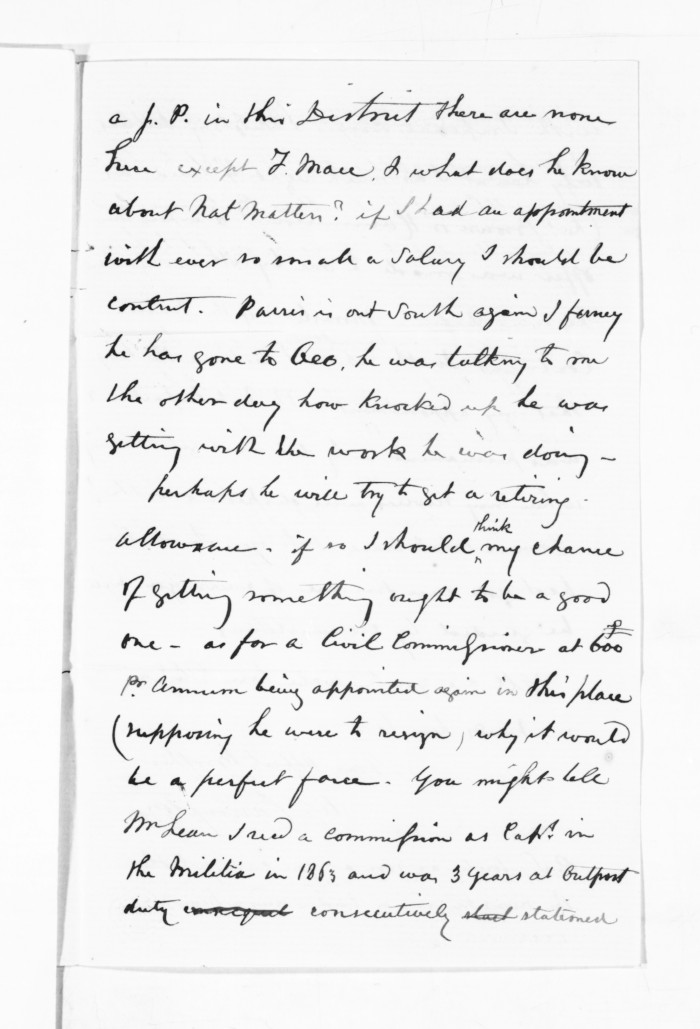 a J. P. in this District there are none
here except F. Mace, & what does he know
about Nat Matters? if I had an appointment
with ever so small a Salary I should be
content. Parris is out South again I fancey
he has gone to Geo, he was talking to me
the other day how knocked up he was
getting with the work he was doing —
perhaps he will try to get a retiring
allowance. if so I should think my chance
of getting something ought to be a good
one — as for a Civil Commissioner at 600£
pr Annum being appointed again in this place
(supposing he were to resign, why it would
be a perfect farce. You might tell
McLean I recd a commission as Capt. in
the Militia in 1863 and was 3 years at Outpost
duty consecutively stationed